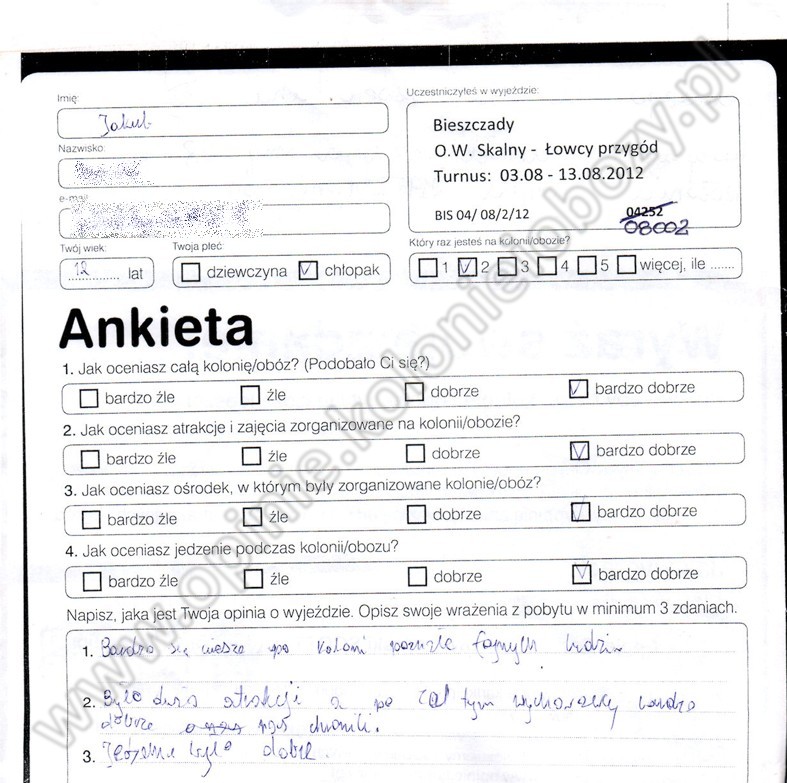 Imię:
Jakub
Uczestniczyłeś w wyjeździe:
Bieszczady
O.W. Skalny - Łowcy przygód
Turnus: 03.08 - 13.08.2012
BIS 04/ 08/2/12
04252
08002
Nazwisko:
e-mail
Twój wiek:
12 lat
Twoja płeć:
dziewczyna
chłopak
Który raz jesteś na kolonii/obozie?
1 2 3 4 5 więcej, ile .......
Ankieta
1. Jak oceniasz całą kolonię/obóz? (Podobało Ci się?)
bardzo źle źle dobrze bardzo dobrze
2. Jak oceniasz atrakcje i zajęcia zorganizowane na kolonii/obozie?
bardzo źle źle dobrze bardzo dobrze
3. Jak oceniasz ośrodek, w którym były zorganizowane kolonie/obóz?
bardzo źle źle dobrze bardzo dobrze
4. Jak oceniasz jedzenie podczas kolonii/obozu?
bardzo źle źle dobrze bardzo dobrze
Napisz, jaka jest Twoja opinia o wyjeździe. Opisz swoje wrażenia z pobytu w minimum 3 zdaniach.
1. Bardzo się ciesze koloni fajnych ludzi
2. Było dużo atrakcji a po za tym wychowawcy bardzo
dobrze nas
3. było dobre.
www.opinie.koloniejobozy.pl